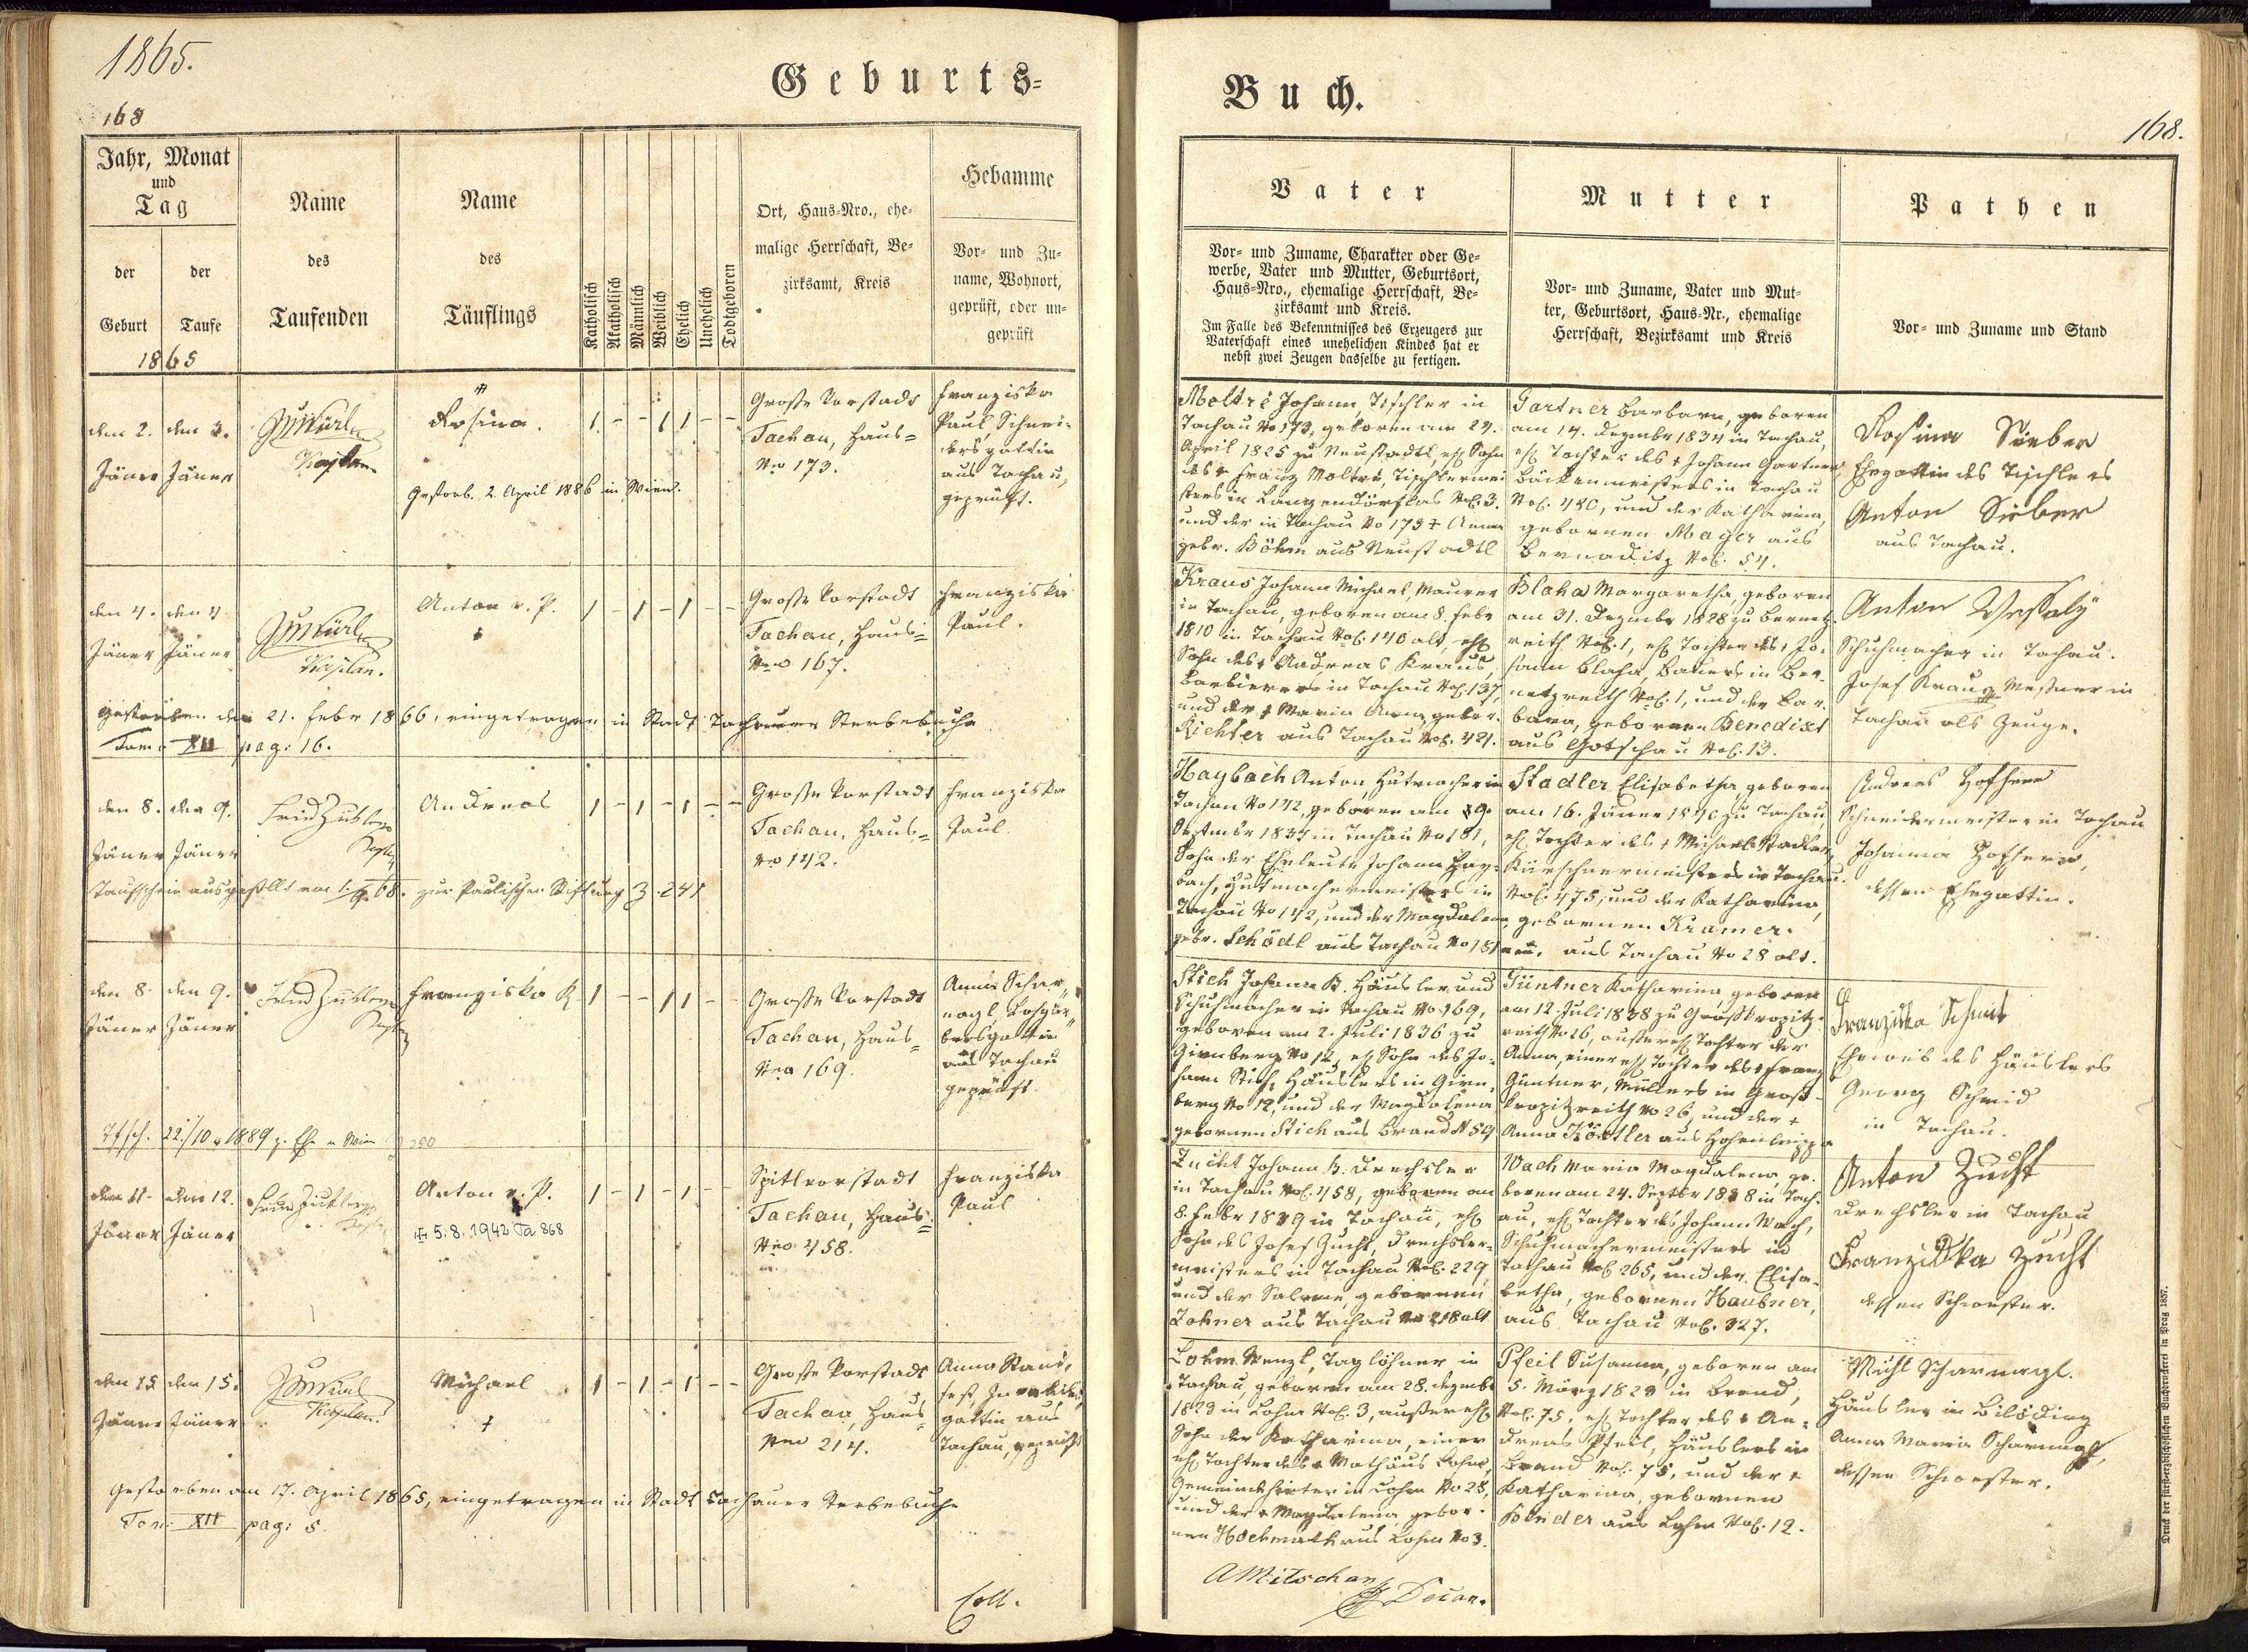 1865.
Geburts=
168
Jahr, Monat
und
Tag
der
Geburt
der
Taufe
1865
Name
des
Taufenden
Name
des
Täuflings
Katholisch
Akatholisch
Männlich
Weiblich
Ehelich
Unehelich
Todtgeboren
Ort, Haus=Nro., ehe=
malige Herrschaft, Be=
zirksamt, Kreis
Hebamme
Vor= und Zu=
name, Wohnort,
geprüft, oder un=
geprüft
den 2. den 3.
Jäner Jäner
Kaplan
Rosina.
Gestorb. 2. April 1886 in Wien.
1 - - 1 1 - -
Große Vorstadt
Tachau, Haus=
Nro 173.
Franziska
Paul, Schnei=
dersgattin
aus Tachau,
geprüft.
den 4. den 4.
Jäner Jäner
Kaplan.
Anton v. P.
1 - 1 - 1 - -
Große Vorstadt
Tachau, Haus=
Nro 167.
Franziska
Paul.
Gestorben den 21. Febr 1866, eingetragen in Stadt Tachauer Sterbebuche
Tom XII pag: 16.
den 8. den 9.
Jäner Jäner
Andreas
1 - 1 - 1 - -
Große Vorstadt
Tachau, Haus=
No 142.
Franziska
Paul.
Taufschein ausgestellt zur Paulischen Stiftung Z. 241
den 8. den 9.
Jäner Jäner
Franziska K.
1 - - 1 1 - -
Große Vorstadt
Tachau, Haus=
Nro 169.
Anna Schar=
nagl,
bersgattin
aus Tachau
geprüft
Tfsch. 22./10. 1889 z. Ehe n. Wien
den 11. den 12.
Jäner Jäner
Anton v. P.
5.8.1942 Ta 868
1 - 1 - 1 - -
Spitlvorstadt
Tachau, Haus=
Nro 458.
Franziska
Paul
den 15 den 15.
Jäner Jäner
Kaplan.
Michael
†
1 - 1 - 1 - -
Große Vorstadt
Tachau, Haus=
Nro 214.
Anna
gattin aus
Tachau, geprüft
Gestorben am 17. April 1865, eingetragen in Stadt Tachauer Sterbebuche
Tom: XII pag: 5.
Coll.
Buch.
168.
Vater
Vor= und Zuname, Charakter oder Ge=
werbe, Vater und Mutter, Geburtsort,
Haus=Nro., ehemalige Herrschaft, Be=
zirksamt und Kreis.
Im Falle des Bekenntnisses des Erzeugers zur
Vaterschaft eines unehelichen Kindes hat er
nebst zwei Zeugen dasselbe zu fertigen.
Mutter
Vor= und Zuname, Vater und Mut=
ter, Geburtsort, Haus=Nr., ehemalige
Herrschaft, Bezirksamt und Kreis
Pathen
Vor= und Zuname und Stand
Moltré Johann, Tischler in
Tachau No 173, geboren am 24.
April 1825 zu Neustadtl, ehl. Sohn
des † Franz Moltré, Tischlermei
sters in Langendörflas NoC. 3.
und der in Tachau No 173 † Anna
gebr. Böhm aus Neustadtl
Gartner Barbara, geboren
am 14. Dezember 1834 in Tachau,
ehl. Tochter des † Johann Gartner,
Bäckenmeisters in Tachau
NoC. 480, und der Katharina,
gebornen Mager aus
Bernaditz NoC. 54.
Rosina Sieber
Ehegattin des Tischlers
Anton Sieber
aus Tachau.
Kraus Johann Michael, Maurer
in Tachau, geboren am 8. Febr
1810 in Tachau NoC. 140 alt, ehl.
Sohn des † Andreas Kraus,
Barbierers in Tachau NoC. 137,
und der † Maria Anna, gebor.
Richter aus Tachau NoC. 421.
Blaha Margaretha, geboren
am 31. Dezember 1828 zu Bernetz
reith NoC. 1, ehl. Tochter des † Jo=
hann Blaha, Bauers in Ber=
netzreith NoC. 1, und der Bar=
bara, gebornen Benedikt
aus Gotschau NoC. 13.
Anton
Schuhmacher in Tachau.
Josef Kraus, Meßner in
Tachau als Zeuge.
Haybach Anton, Hutmacher in
Tachau No 142, geboren am 29
Septmbr 1837 in Tachau No 181,
Sohn der Eheleute Johann Hay=
bach, Hutmachermeisters in
Tachau No 142, und der Magdalena
gebr. Schödl aus Tachau No 181
Stadler Elisabetha, geboren
am 16. Jäner 1840 zu Tachau
ehl. Tochter des † Michael Stadler,
Kürschnermeisters in Tachau.
NoC. 475, und der Katharina,
gebornen Kramer.
aus Tachau No 28 alt.
Andreas Hofherr
Schneidermeister in Tachau
Johanna Hofherr,
dessen Ehegattin.
Stich Johann B. Häusler und
Schuhmacher in Tachau No 169,
geboren am 2. Juli 1836 zu
Girnberg No 12, ehl. Sohn des Jo=
hann Stich, Häuslers in Girn=
berg No 12, und der Magdalena
gebornen Stich aus Brand N 59
Güntner Katharina, geboren
am 12. Juli 1838 zu Großkropitz=
reith No 26, außerehl. Tochter der
Anna, einer ehl. Tochter des † Franz
Güntner, Müllers in Groß=
kropitzreith No 26, und der †
Anna Köstler aus
Franziska Schmid
Eheweib des Häuslers
Georg Schmid
in Tachau.
Zucht Johann B. Drechsler
in Tachau NoC. 458, geboren am
8. Febr 1839 in Tachau, ehl.
Sohn des Josef Zucht, Drechsler=
meisters in Tachau NoC. 229
und der Salome, gebornen
Lohner aus Tachau No 218 alt
Wach Maria Magdalena, ge=
boren am 24. Septbr 1838 in Tach=
au, ehl. Tochter des Johann Wach,
Schuhmachermeisters in
Tachau NoC. 265, und der Elisa=
betha, gebornen Haubner,
aus Tachau NoC. 327.
Anton Zucht
Drechsler in Tachau
Franziska Zucht
dessen Schwester.
Lohm Wenzl, Taglöhner in
Tachau, geboren am 28. Dezmbr
1823 in Lohm NoC. 3, außerehl.
Sohn der Katharina, einer
ehl. Tochter des † Mathäus Lohm,
Gemeindehirten in Lohm No 28,
und der † Magdalena, gebor=
nen Hochmuth aus Lohm No 3.
Pfeil Susanna, geboren am
5. März 1823 in Brand,
NoC. 75, ehl. Tochter des † An=
dreas Pfeil, Häuslers in
Brand NoC. 75, und der †
Katharina, gebornen
Binder aus Lohm NoC. 12.
Michl Scharnagl.
Häusler in
Anna Maria Scharnagl,
dessen Schwester.
A Mitschan
Decan.
Druck der fürsterzbischöflichen Buchdruckerei in Prag 1857.